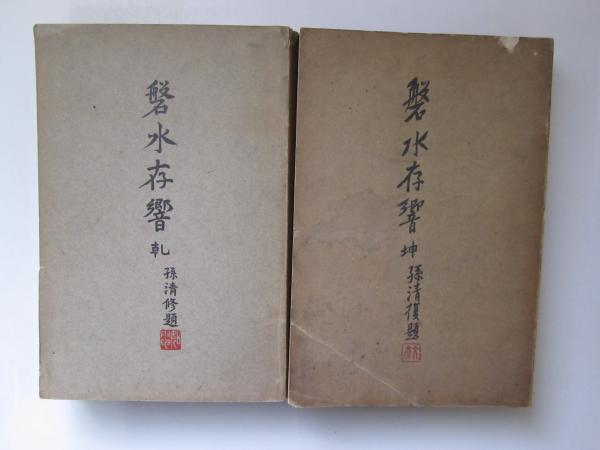 磐水存響 乾
孫清修題
磐水存響 坤
孫清復題